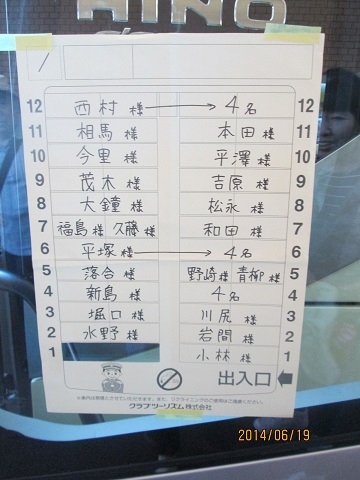 HINO
12 西村 様 → 4名 12
11 相馬 様 本田 様 11
10 今里 様 平澤 様 10
9 茂木 様 吉原 様 9
8 大鐘 様 松永 様 8
7 福島 様 久藤 様 和田 様 7
6 平塚 様 → 4名 6
5 落合 様 野崎 様 青柳 様 5
4 新島 様 4名 4
3 堀口 様 川尻 様 3
2 水野 様 岩間 様 2
1 小林 様 1
出入口
クラブツーリズム株式会社
2014/06/19